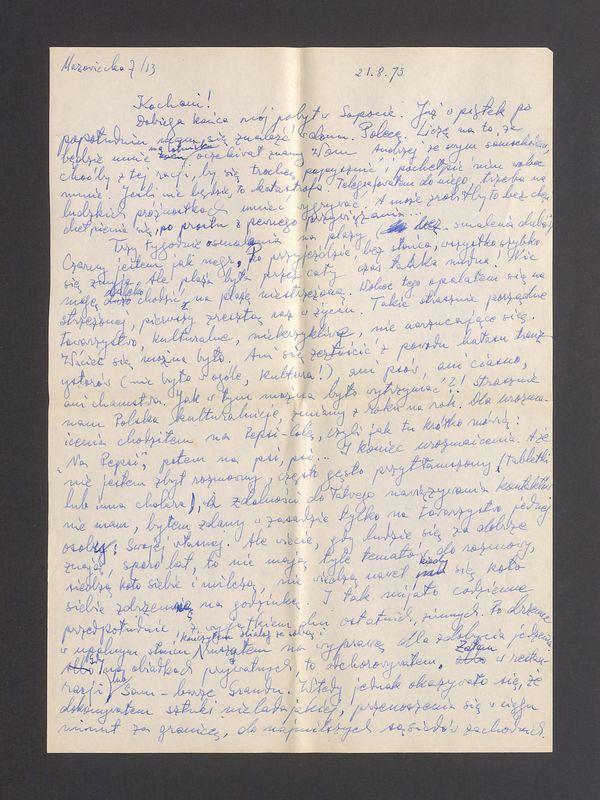 Mazowiecka 7/13
21.8.75
Kochani!
Dobiega końca mój pobyt w Sopocie. Już w piątek po
popołudniu mam się znaleźć w domu. Polecę. Liczę na to, że
będzie mnie na lotnisku oczekiwał znany Wam Andrzej ze swym samochodem,
choćby z tej racji, by się trochę popysznić i pochełpić nim wobec
mnie. Jeśli nie będzie to katastrofa. Telegrafowałem do niego, trzeba na
ludzkich próżnostkach umieć wygrywać. A może zrobiłby to bez chęci
chełpienia się, po prostu z pewnego przywiązania...
Trzy tygodnie osmalania na plaży (bez smalenia duba).
Czarny jestem jak negr, po przyjeździe, bez słońca, wszystko szybko
się zmyje. Ale plaża była przez cały czas taka nudna! Nie
mogę daleko chodzić, na plażę niestrzeżoną. Wobec tego opalałem się na
strzeżonej, pierwszy zresztą raz w życiu. Takie strasznie porządne
towarzystwo, kulturalne, niekrzykliwe, nie narzucające się.
Wściec się można było. Ani się zezłościć z powodu hałasu tranz-
ystorów (nie było w ogóle, kultura!), ani psów, ani ciasno,
ani chamstwa. Jak w tym można było wytrzymać?! Strasznie
nam Polska skulturalnieje, zmiany z roku na rok. Dla urozma-
icenia chodziłem na Pepsi-Colę, czyli jak tu krótko mówią:
"Na Pepsi", potem na psi, psi... I koniec urozmaicenia. A że
nie jestem zbyt rozmowny, często gęsto przytłamszony (tabletki
lub inna cholera), i zdolności do łatwego nawiązywania kontaktów
nie mam, byłem zdany w zasadzie tylko na towarzystwo jednej
osoby: swojej własnej. Ale wiecie, gdy ludzie się za dobrze
znają, sporo lat, to nie mają tyle tematów do rozmowy,
siedzą koło siebie i milczą, nie wiedzą nawet kiedy się koło
siebie zdrzemną na godzinkę. I tak mijało codzienne
przedpołudnie z wyjątkiem paru ostatnich, zimnych. Po drzemce
w upalnym słońcu (kończyłem śniadać ze sobą) ruszałem na wyprawę dla zdobycia jedzenia.
Po tych obiadkach prywatnych, to zachorowałem. Zatem w restau-
racji, lub Sam-barze Grandu. Wtedy jednak okazywało się, że
dokonywałem sztuki nielada jakiej, przenosząc się w ciągu
minut za granicę, do najmilszych sąsiadów zachodnich.